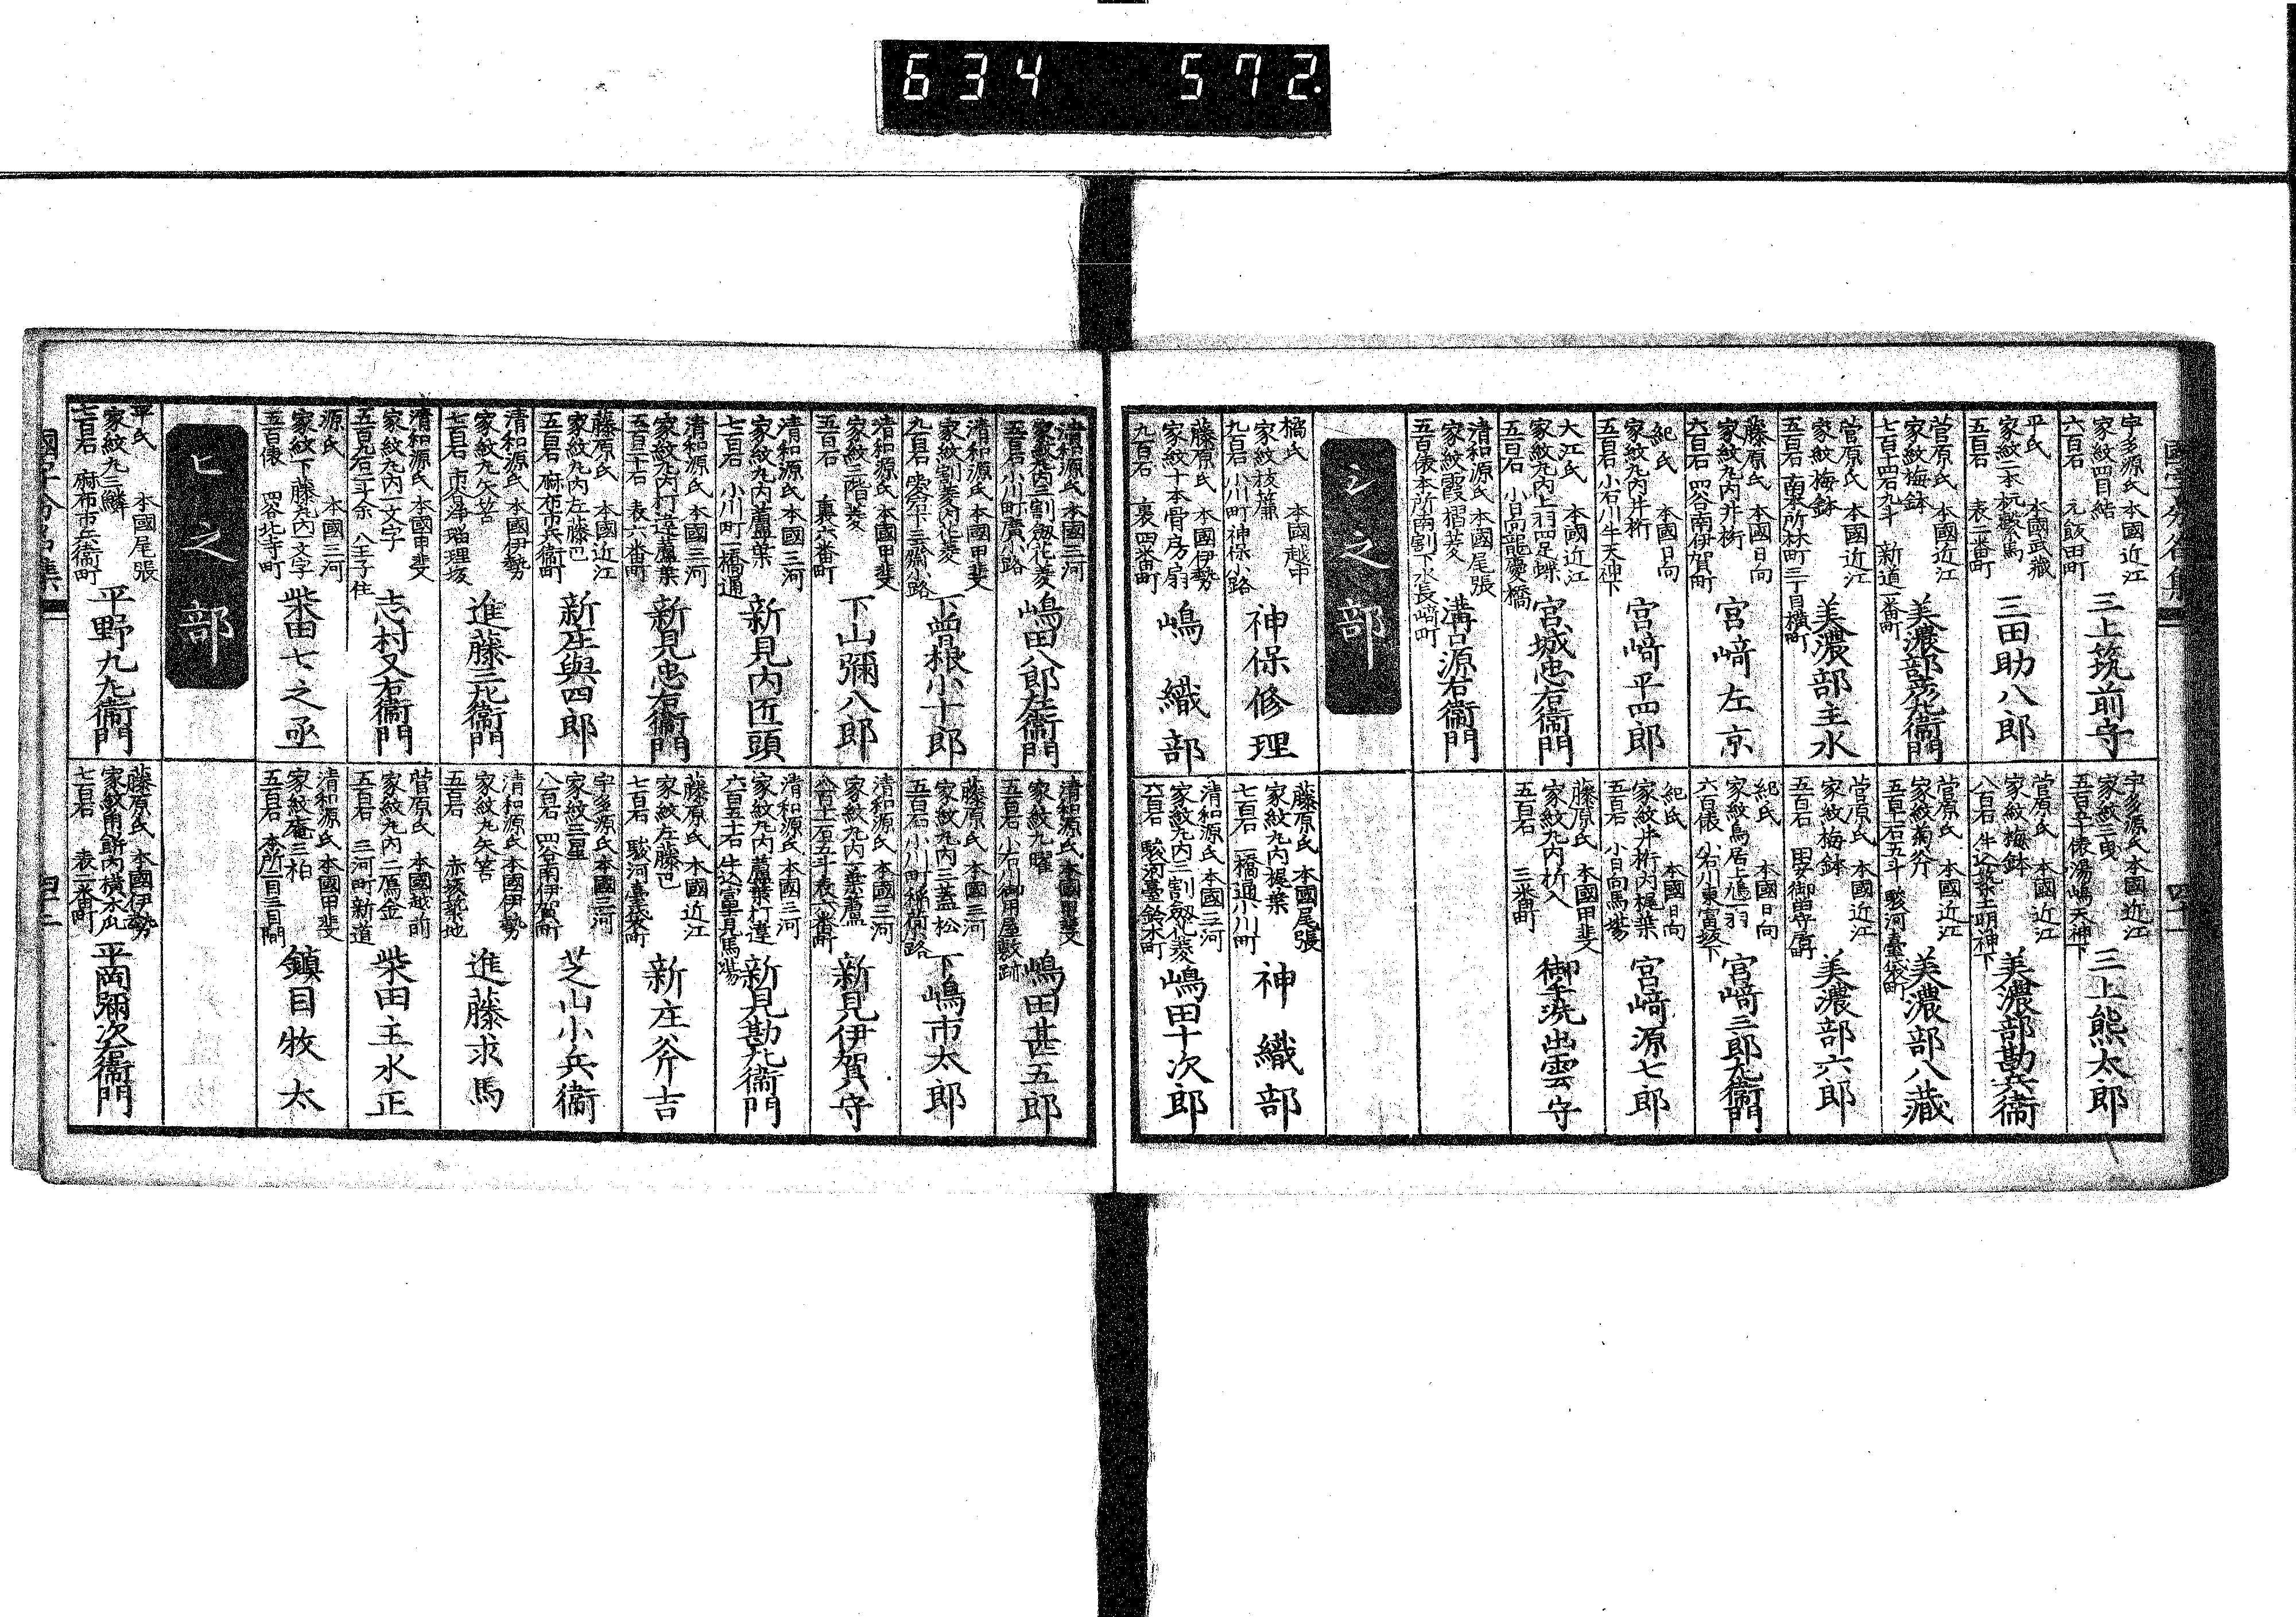 634 572.
宇多源氏 本國近江
家紋四目結
六百石 元飯田町
三上筑前守
平氏 本國武藏
家紋二本杭繋馬
五百石 表二番町
三田助八郎
菅原氏 本國近江
家紋梅鉢
七百十四石九斗 新道一番町
美濃部彦左衞門
菅原氏 本國近江
家紋梅鉢
五百石 南本所林町三丁目横町
美濃部主水
藤原氏 本國日向
家紋丸内井桁
六百石 四谷南伊賀町
宮﨑左京
紀氏 本國日向
家紋丸内井桁
五百石 小石川牛天神下
宮﨑平四郎
大江氏 本國近江
家紋丸内上羽四足蝶
五百石 小日向龍慶橋
宮城忠右衞門
清和源氏 本國尾張
家紋霞摺菱
五百俵 本所南割下水長﨑町
溝口源右衞門
シ之部
橘氏 本國越中
家紋枝簾
九百石 小川町神保小路
神保修理
藤原氏 本國伊勢
家紋十本骨房扇
九百石 裏四番町
嶋織部
宇多源氏 本國近江
家紋三曳
五百五十俵 湯嶋天神下
三上熊太郎
菅原氏 本國近江
家紋梅鉢
八百石 牛込築土明神下
美濃部勘兵衞
菅原氏 本國近江
家紋菊竹
五百石五斗 駿河臺袋町
美濃部八藏
菅原氏 本國近江
家紋梅鉢
五百石 田安御留守居町
美濃部六郎
紀氏 本國日向
家紋鳥居上鳩二羽
六百俵 小石川東富坂下
宮﨑三郎左衞門
紀氏 本國日向
家紋井桁内梶葉
五百石 小日向馬場
宮﨑源七郎
藤原氏 本國甲斐
家紋丸内折入
五百石 三番町
御手洗出雲守
藤原氏 本國尾張
家紋丸内梶葉
七百石 一橋通小川町
神織部
清和源氏 本國三河
家紋丸内三割劔花菱
六百石 駿河臺鈴木町
嶋田十次郎
清和源氏 本國三河
家紋丸内三割劔花菱
五百石 小川町廣小路
嶋田八郎左衞門
清和源氏 本國甲斐
家紋割菱内花菱
下曽根小十郎
清和源氏 本國甲斐
家紋三階菱
五百石 裏六番町
下山彌八郎
清和源氏 本國三河
家紋丸内蘆葉
七百石 小川町一橋通
新見内匠頭
清和源氏 本國三河
家紋丸内打違蘆葉
五百三十石 表六番町
新見忠右衞門
藤原氏 本國近江
家紋丸内左藤巴
五百石 麻布市兵衞町
新庄與四郎
清和源氏 本國伊勢
家紋丸矢筈
七百石 市谷浄瑠理坂
進藤三左衞門
清和源氏 本國甲斐
家紋丸内一文字
五百九石三斗余 八王子住
志村又右衞門
源氏 本國三河
家紋下藤丸内一文字
五百俵 四谷北寺町
柴田七之丞
ヒ之部
平氏 本國尾張
家紋丸三鱗
七百石 麻布市兵衞町
平野九左衞門
清和源氏 本國甲斐
家紋九曜
五百石 小石川御用屋敷跡
嶋田甚五郎
藤原氏 本國三河
家紋丸内三蓋松
五百石 小川町稲荷小路
下嶋市太郎
清和源氏 本國三河
家紋丸内一葉蘆
新見伊賀守
清和源氏 本國三河
家紋丸内蘆葉打違
六百五十石 牛込富士見馬場
新見勘左衞門
藤原氏 本國近江
家紋左藤巴
七百石 駿河臺袋町
新庄斧吉
宇多源氏 本國三河
家紋三星
八百石 四谷南伊賀町
芝山小兵衞
清和源氏 本國伊勢
家紋丸矢筈
五百石 赤坂築地
進藤求馬
菅原氏 本國越前
家紋丸内二鴈金
五百石 三河町新道
柴田主水正
清和源氏 本國甲斐
家紋庵三柏
五百石 本所二百三日間
鎮目牧太
藤原氏 本國伊勢
七百石 表二番町
平岡彌次右衞門
國字分名集
四十一
國字分名集
四十二